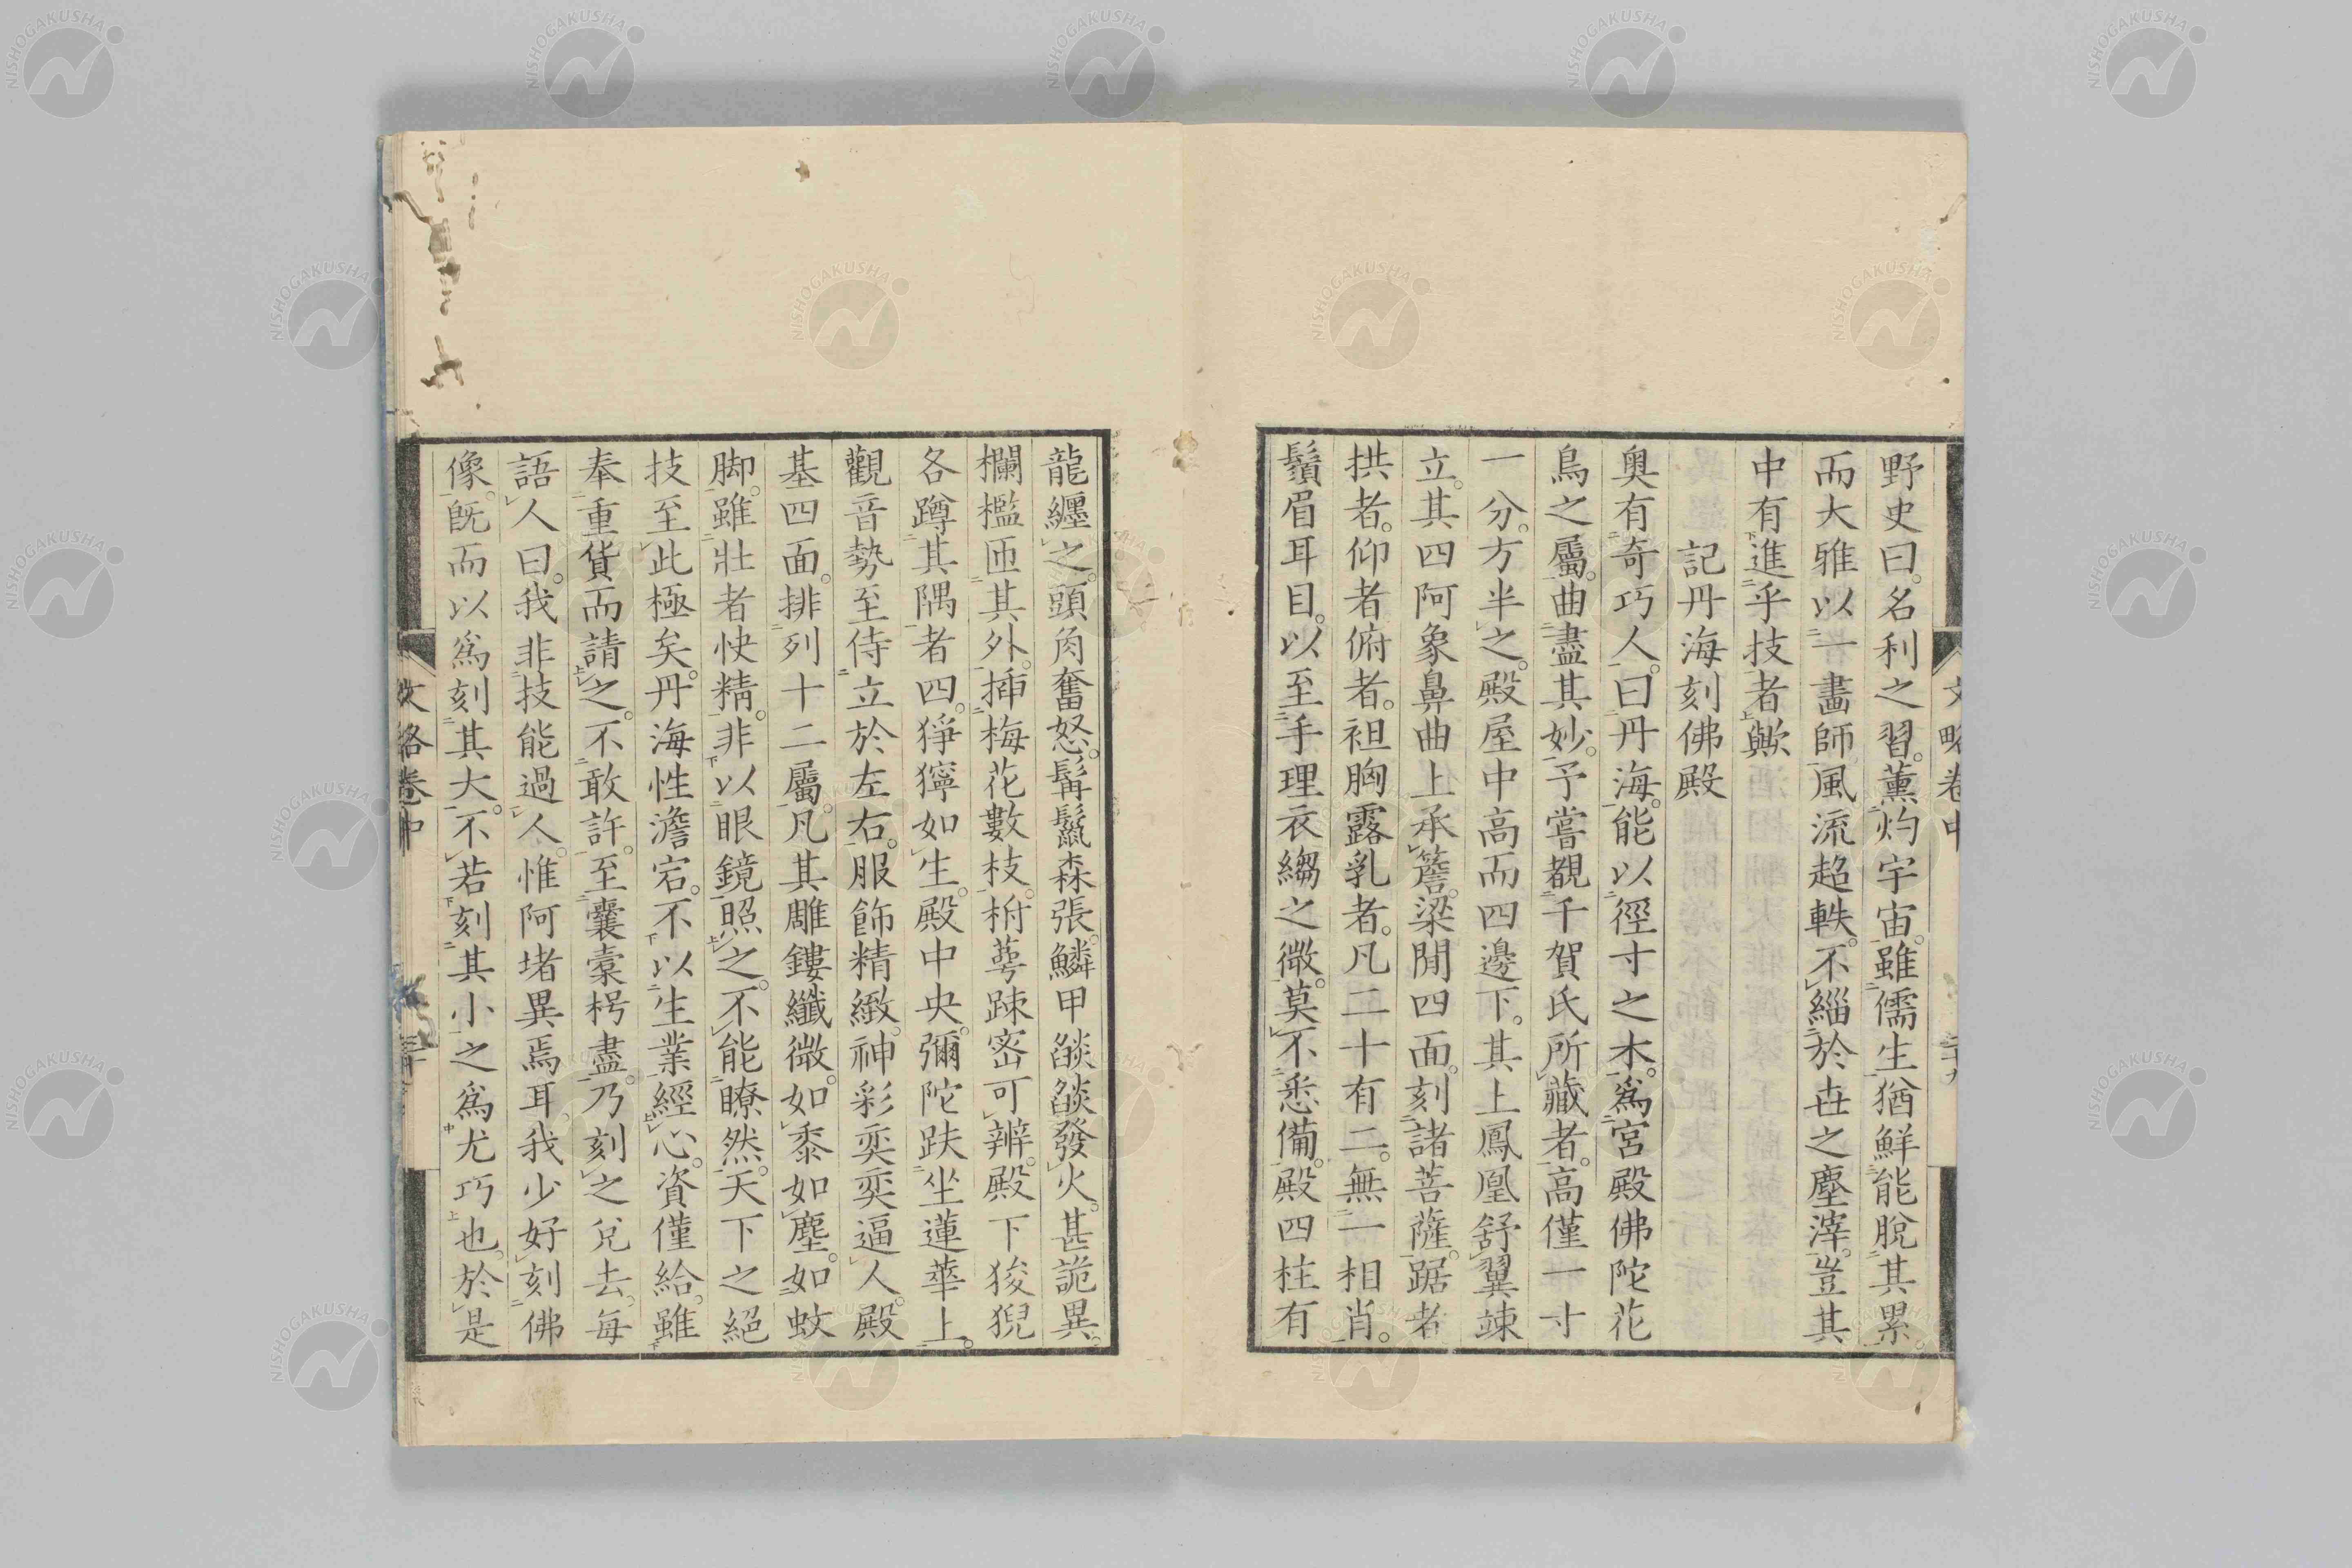 野史曰。名利之習。薰灼宇宙。雖儒生猶鮮能脫其累
而大雅以一畫師風流超軼。不緇於世之塵滓。豈其
中有進乎技者歟
記丹海刻佛殿
奧有奇巧人。曰丹海。能以徑寸之木。爲宮殿佛陀花
鳥之屬。曲盡其妙。予嘗覩千賀氏所藏者。高僅一寸
一分。方半之。殿屋中高而四邊下。其上鳳凰舒翼竦
立。其四阿象鼻曲上承簷。梁閒四面。刻諸菩薩。踞者
拱者。仰者俯者。袒胸露乳者。凡二十有二。無一相肖。
鬚眉耳目。以至手理衣縐之微。莫不悉備。殿四柱有
龍纏之。頭角奮怒。髯鬣森張。鱗甲燄燄發火。甚詭異。
欄檻匝其外。揷梅花數枝。柎萼疎密可辨。殿下狻猊
各蹲其隅者四。猙獰如生。殿中央。彌陀趺坐蓮華上。
觀音勢至侍立於左右。服飾精緻。神彩奕奕逼人。殿
基四面。排列十二屬。凡其雕鏤纖微。如黍如塵。如蚊
脚。雖壯者快精。非以眼鏡照之。不能瞭然。天下之絕
技至此極矣。丹海性澹宕。不以生業經心。資僅給。雖
奉重貨而請之。不敢許。至囊橐枵盡。乃刻之兌去。每
語人曰。我非技能過人。惟阿堵異焉耳。我少好刻佛
像。旣而以爲刻其大。不若刻其小之爲尤巧也。於是
文略卷中